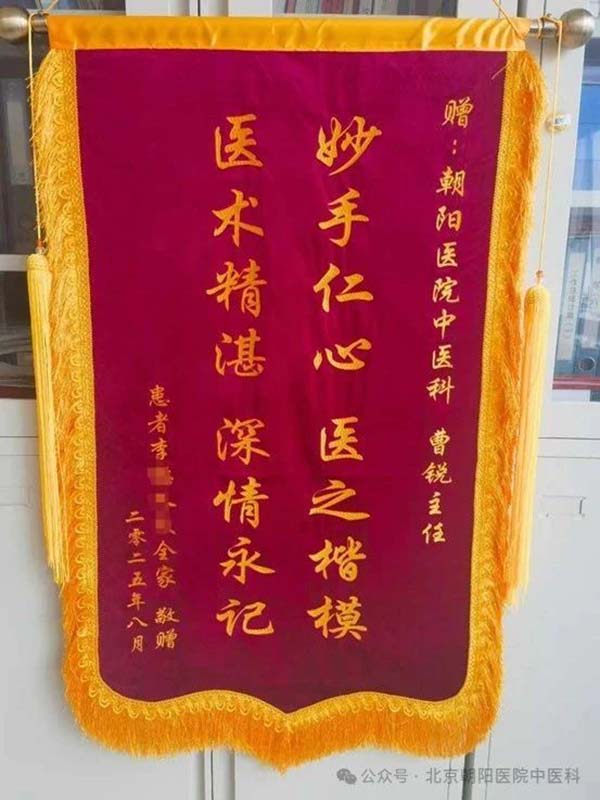 赠：朝阳医院中医科 曹锐主任
妙手仁心 医之楷模
医术精湛 深情永记
患者李 全家 敬赠
二零二五年八月
公众号·北京朝阳医院中医科